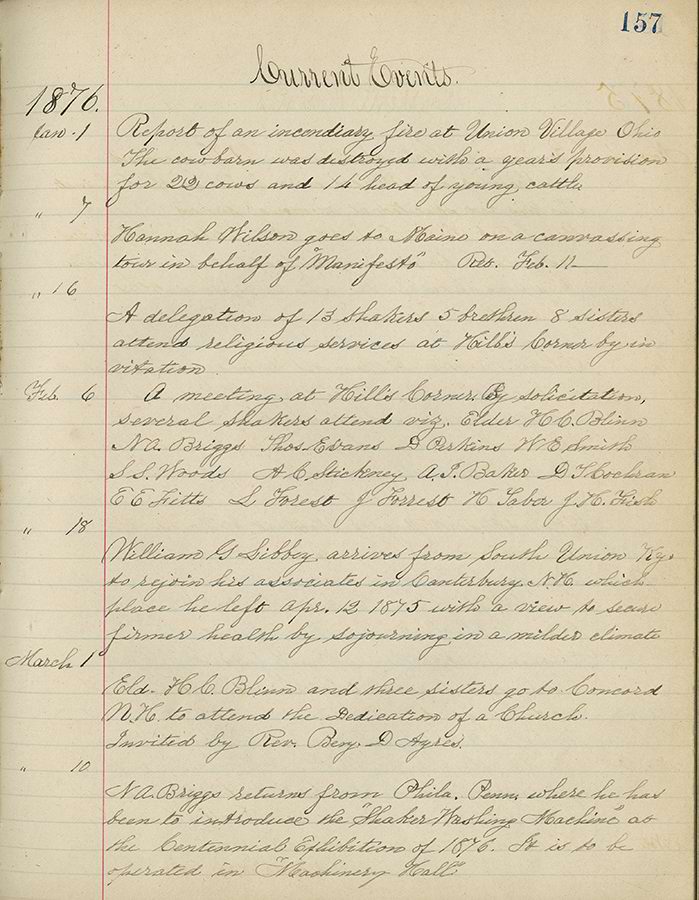 157
Current Events.
1876.
Jan. 1 Report of an incendiary fire at Union Village Ohio
The cow barn was destroyed with a year's provision
for 22 cows and 14 head of young cattle
" 7
Hannah Wilson goes to Maine on a canvassing
tour in behalf of "Manifesto" Ret. Feb. 11
" 16
A delegation of 13 Shakers 5 brethren 8 sisters
attend religious services at Hill's Corner by in
vitation
Feb. 6 A meeting at Hill's Corner. By solicitation,
several Shakers attend viz. Elder H.C. Blinn
N.A. Briggs Thos Evans D Perkins W E Smith
S.S. Woods A C Stickney A. J. Baker D J Cochran
E E Fitts L Forest J Forrest H Tabor J. H. Fish
" 18
William G Libbey arrives from South Union Ky.
to rejoin his associates in Canterbury N.H. which
place he left Apr. 12 1875 with a view to secure
firmer health by sojourning in a milder climate
March 1
Eld. H.C. Blinn and three sisters go to Concord
N.H. to attend the Dedication of a Church.
Invited by Rev. Benj. D Ayres.
" 10
N.A. Briggs returns from Phila. Penn. where he has
been to introduce the "Shaker Washing Machine" at
the Centennial Exhibition of 1876. It is to be
operated in "Machinery Hall"